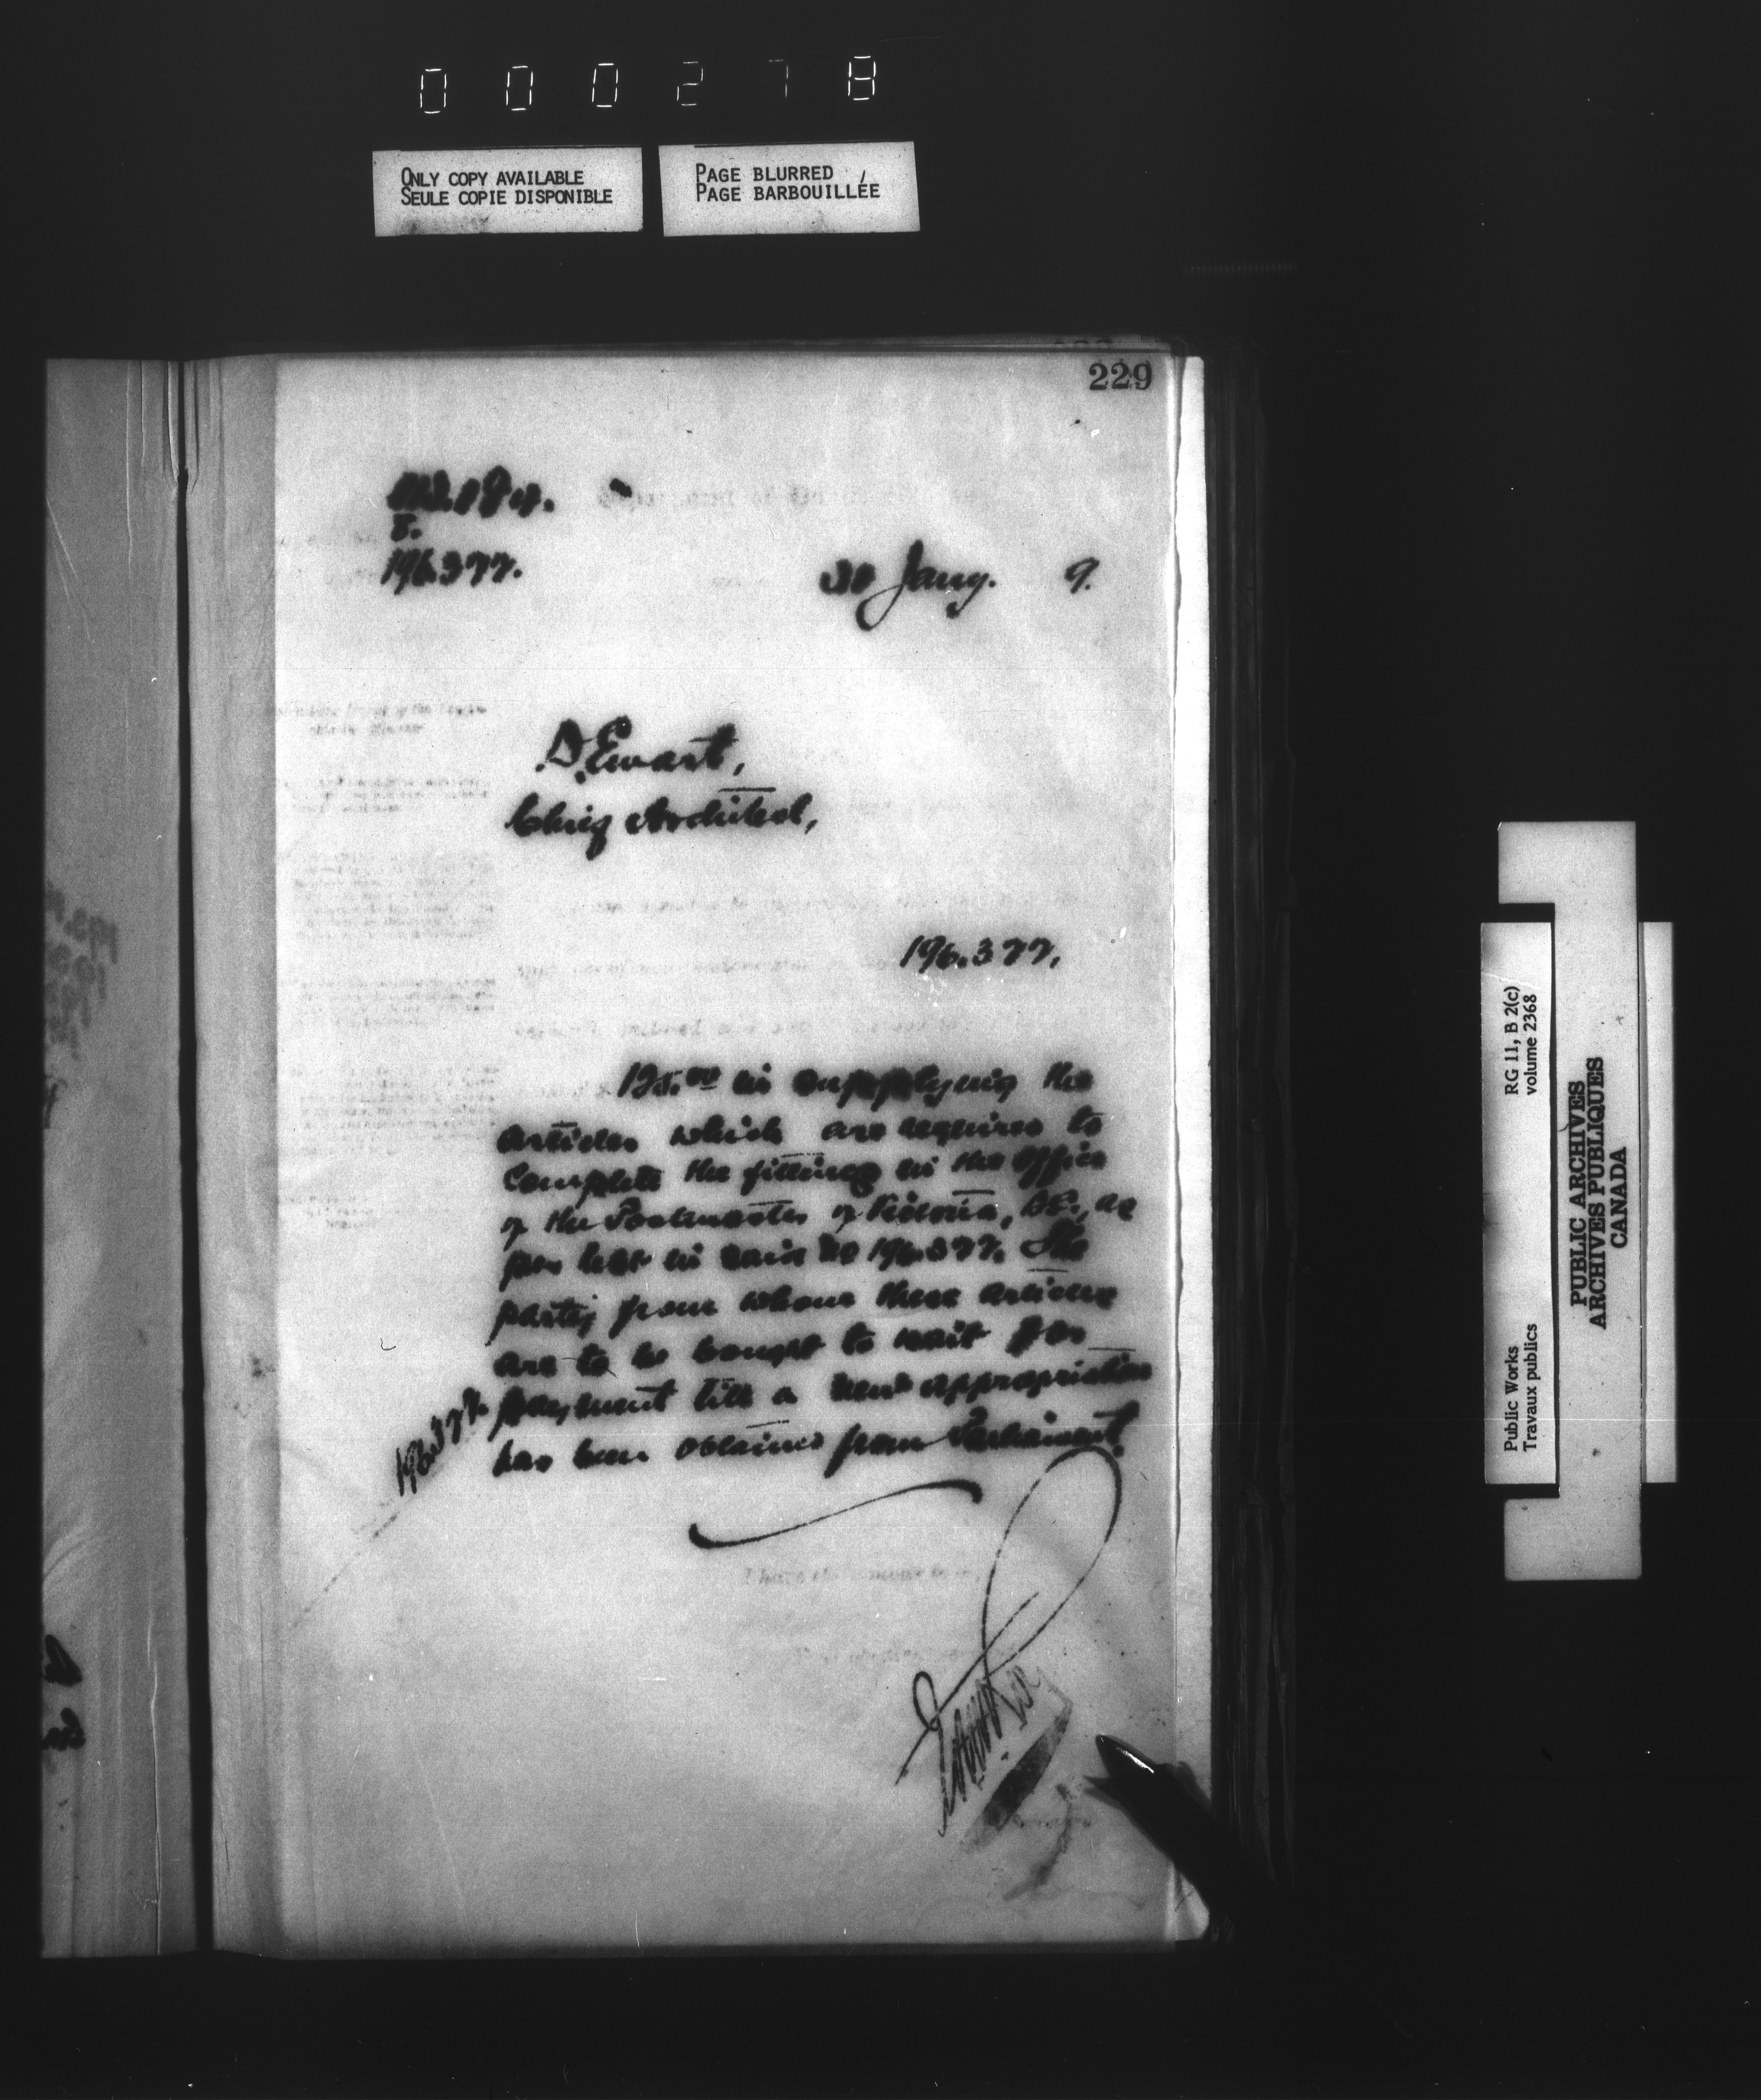 000278
ONLY COPY AVAILABLE
SEULE COPIE DISPONIBLE
PAGE BLURRED
PAGE BARBOUILLÉE
229
196377.
30 Jany. 9.
D. Ewart,
Chief Architect,
196.377.
125.00 in supplying the
articles which are required to
complete the fittings in the Office
of the Postmaster of Victoria, B.C., as
per in No 196.377. The
party from whom these articles
are to be bought to wait for
payment till a new appropriation
has been obtained from Parliament.
196377
RG 11, B 2(c)
volume 2368
Public Works
Travaux publics
PUBLIC ARCHIVES
ARCHIVES PUBLIQUES
CANADA